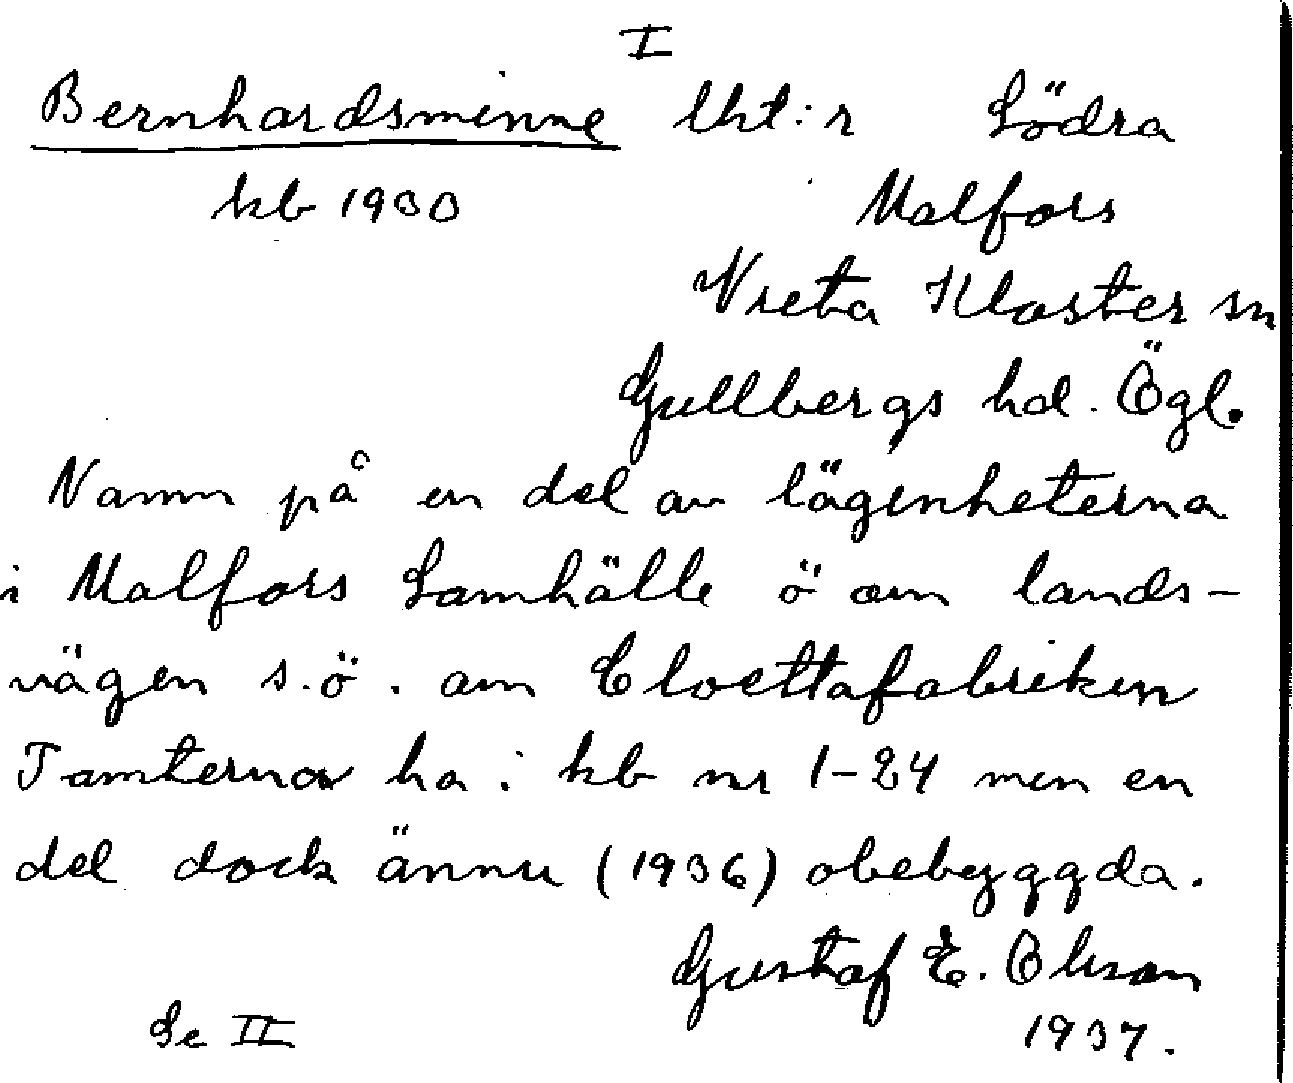 I
Bernhardsminne lht:r Södra
kb 1930 Malfors
Vreta Kloster sn
Gullbergs hd. Ögl.
Namn på en del av lägenheterna
i Malfors Samhälle ö om lands-
vägen s.ö. om Cloettafabriken
Tomterna ha i kb nr 1-24 men en
del dock ännu (1936) obebyggda.
Gustaf E. Olsson
Se II 1937.